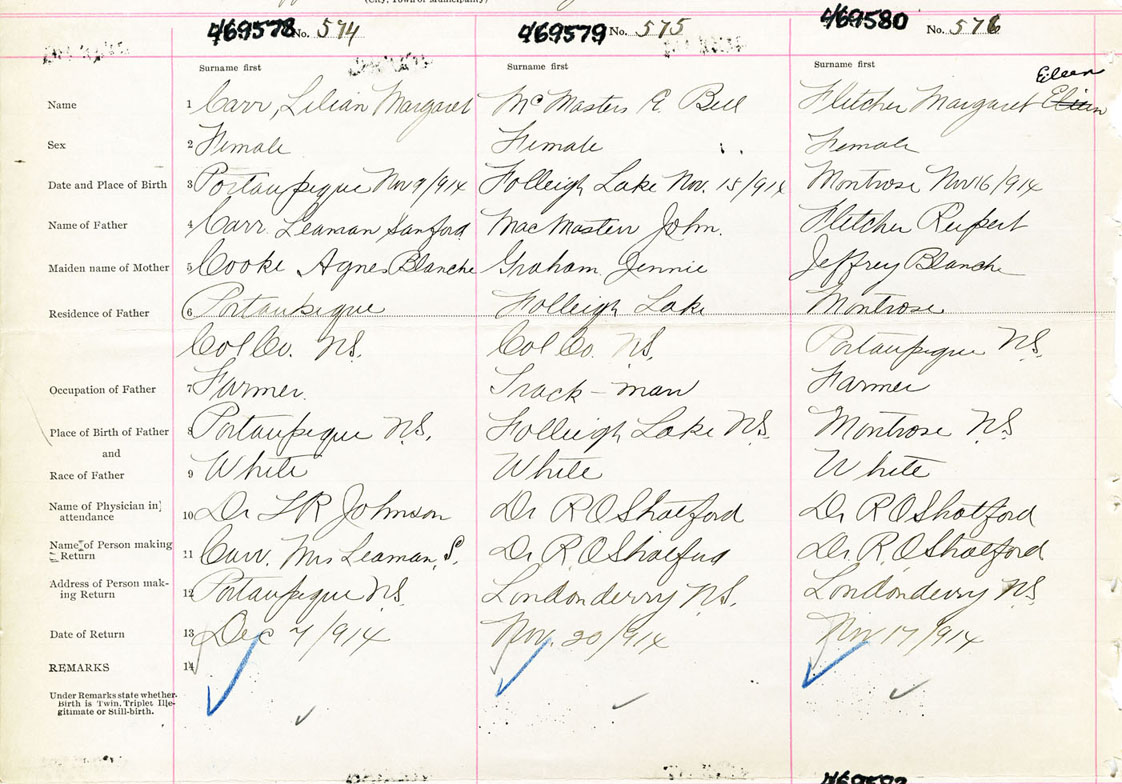 (City, Town or Municipality)
469578 No. 574 469579 No. 575 469580 No. 576
Surname first Surname first Surname first
Eileen
Name 1 Carr, Lilian Margaret McMasters E Bell Fletcher Margaret
Sex 2 Female Female Female
Date and Place of Birth 3 Portaupique Nov 9/914 Folleigh Lake Nov. 15/914 Montrose Nov 16/914
Name of Father 4 Carr. Leaman Sanford MacMaster John. Fletcher Rupert
Maiden name of Mother 5 Cooke Agnes Blanche Graham, Jennie Jeffrey Blanche
Residence of Father 6 Portaupique Folleigh Lake Montrose
Col Co. N.S. Col Co. N.S. Portaupique N.S.
Occupation of Father 7 Farmer. Track-man Farmer
Place of Birth of Father 8 Portaupique N.S. Folleigh Lake N.S. Montrose N.S
and
Race of Father 9 White White White
Name of Physician in attendance 10 Dr T R Johnson Dr R O Shatford Dr R O Shatford
Name of Person making Return 11 Carr. Mrs Leaman, S. Dr R O Shatford Dr R. O Shatford
Address of Person making Return 12 Portaupique N.S. Londonderry N.S. Londonderry N.S.
Date of Return 13 Dec 7/914 Nov. 20/914 Nov 17/914
REMARKS 14
Under Remarks state whether
Birth is Twin, Triplet, Ille-
gitimate or Still-birth.